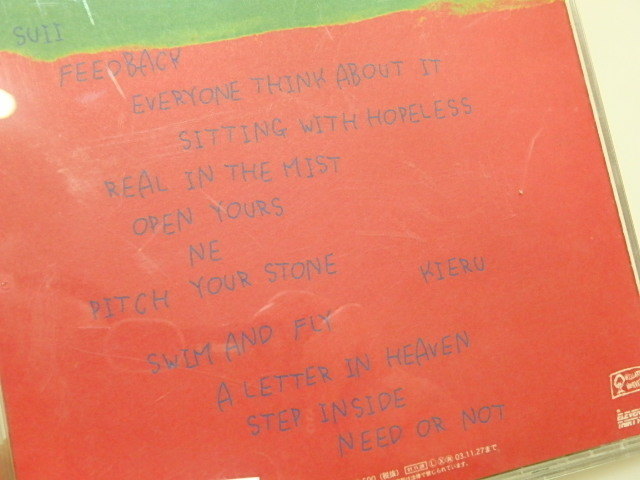 SUII
FEEDBACK
EVERYONE THINK ABOUT IT
SITTING WITH HOPELESS
REAL IN THE MIST
OPEN YOURS
NE
PITCH YOUR STONE
KIERU
SWIM AND FLY
A LETTER IN HEAVEN
STEP INSIDE
NEED OR NOT
03.11.27まで